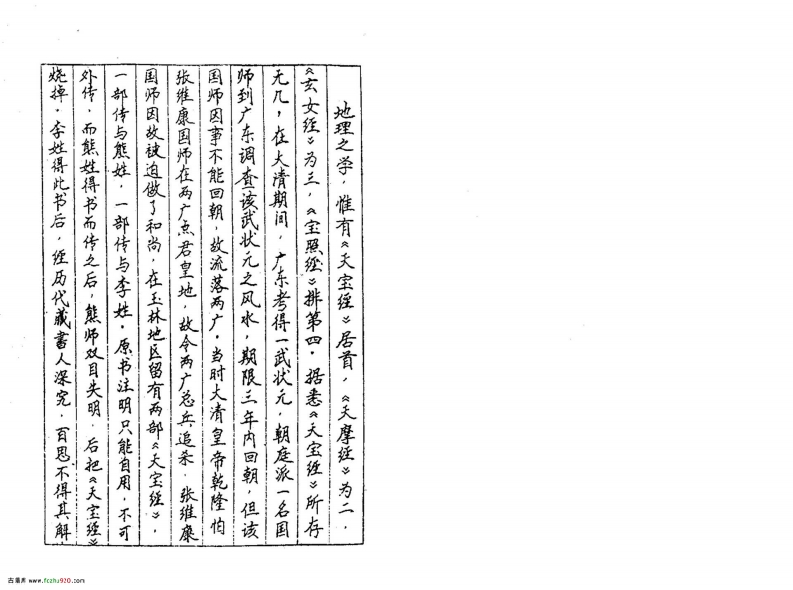 地理之学，惟有《天宝经》居首，《天摩经》为二，
《玄女经》为三，《宝照经》排第四。据悉《天宝经》所存
无几，在大清期间，广东考得一武状元，朝庭派一名国
师到广东调查该武状元之风水，期限三年内回朝，但该
国师因事不能回朝，故流落两广。当时大清皇帝乾隆怕
张维康国师在两广点君皇地，故令两广总兵追杀。张维糜
国师因故被迫做了和尚，在玉林地区留有两部《天宝经》，
一部传与熊姓，一部传与李姓。原书注明只能自用，不可
外传，而熊姓得书而传之后，熊师双目失明，后把《天宝经》
烧掉。李姓得此书后，经历代藏書人深究，百思不得其解，
www.fczhu920.com